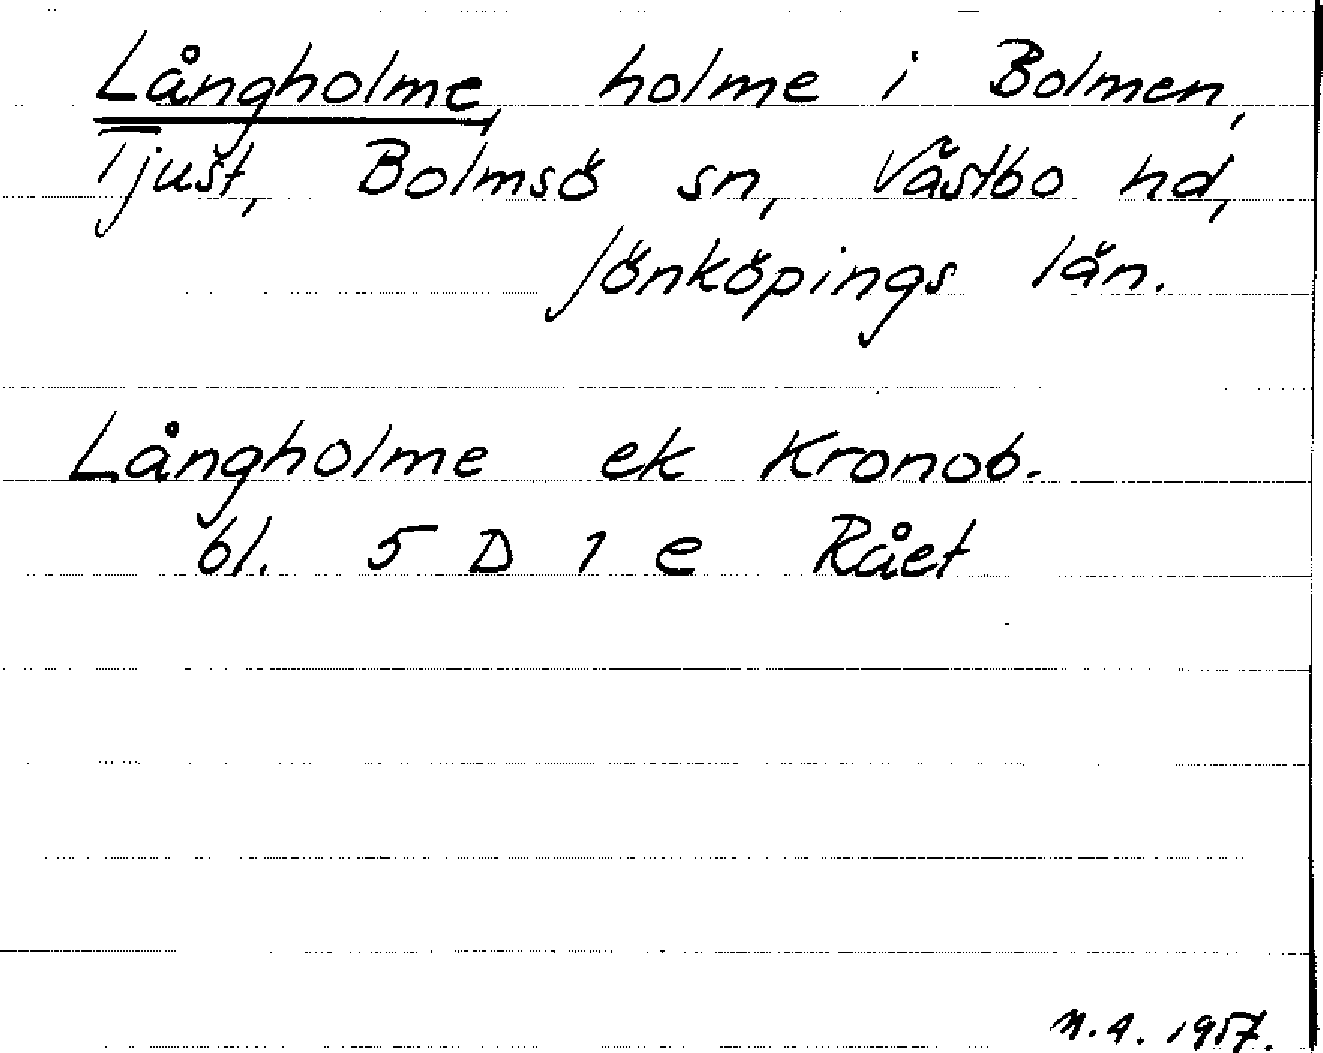 Långholme, holme i Bolmen,
Tjust, Bolmsö sn, Västbo hd,
Jönköpings län.
Långholme ek Kronob.
bl. 5 D 1 e Rået
N.A. 1957.